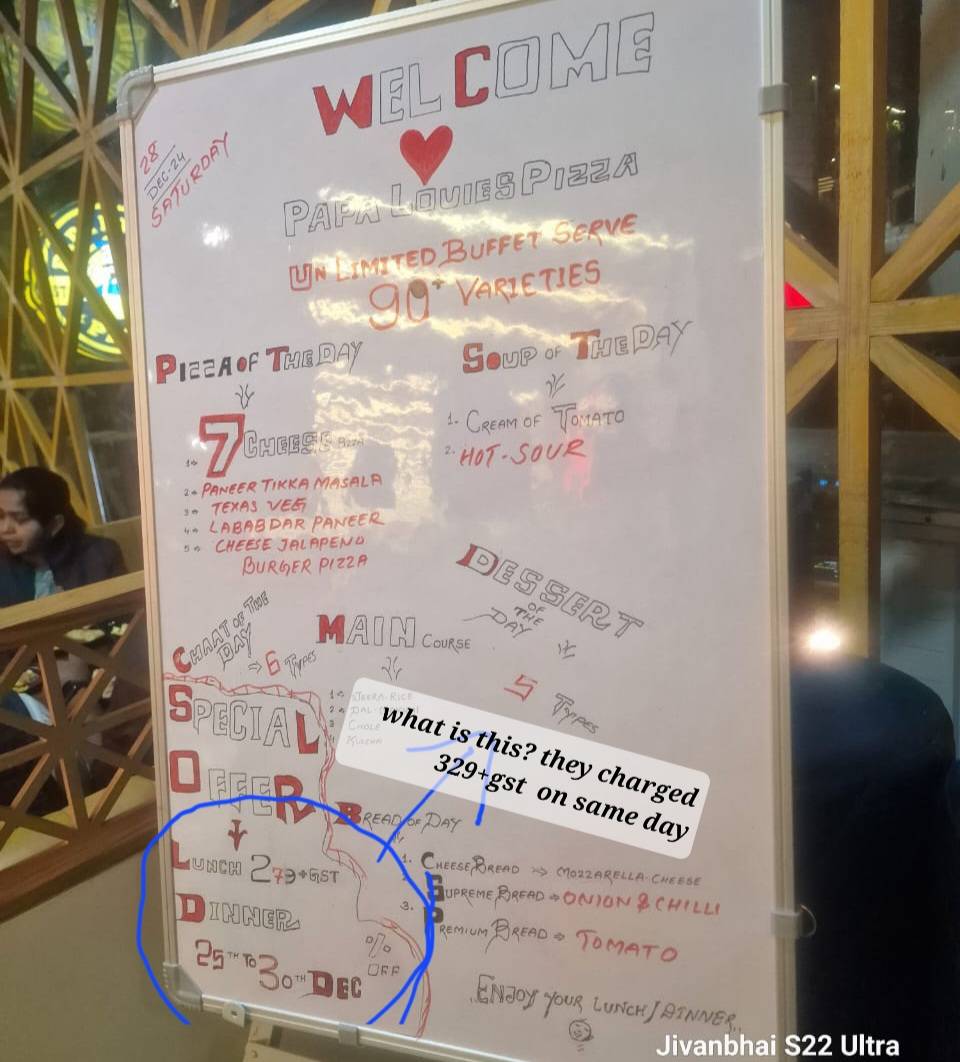 28
DEC-24
SATURDAY
WELCOME
PAPA LOUIES PIZZA
UNLIMITED BUFFET SERVE
90+ VARIETIES
PIZZA OF THE DAY
1→ 7 CHEESE PIZZA
2→ PANEER TIKKA MASALA
3→ TEXAS VEG
4→ LABABDAR PANEER
5→ CHEESE JALAPENO
BURGER PIZZA
SOUP OF THE DAY
1- CREAM OF TOMATO
2- HOT-SOUR
CHAAT OF THE
DAY
→ 6 TYPES
MAIN COURSE
1- JEERA-RICE
2 DAL
3 CHOLE
4 KULCHA
DESSERT
OF
THE
DAY
5 TYPES
what is this? they charged
329+gst on same day
SPECIAL
OFFER
LUNCH 279+GST
DINNER
25TH TO 30TH DEC
% OFF
BREAD OF DAY
1. CHEESE BREAD → MOZZARELLA-CHEESE
SUPREME BREAD → ONION & CHILLI
3. PREMIUM BREAD → TOMATO
ENJOY YOUR LUNCH/DINNER..
Jivanbhai S22 Ultra